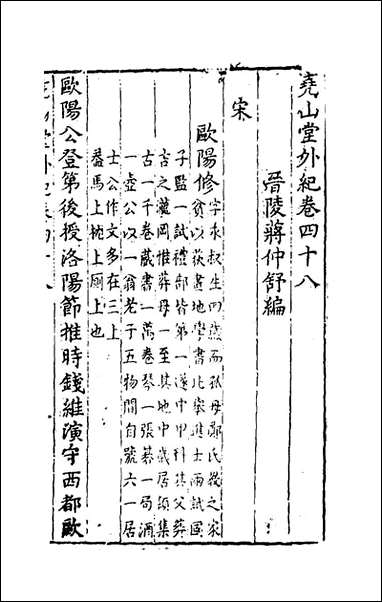 堯山堂外紀卷四十八
晉陵蔣仲舒編
宋
歐陽修
字永叔生四歲而孤母鄭氏教之家
貧以荻畫地學書比舉進士兩試國
子監一試禮部皆第一遂中甲科其父葬
吉之瀧岡惟葬母一至其地中歲居潁集
古一千卷藏書一萬卷琴一張棋一局酒
一壺公以一翁老于五物間自號六一居
士公作文多在三上
蓋馬上枕上廁上也
歐陽公登第後授洛陽節推時錢維演守西都歐